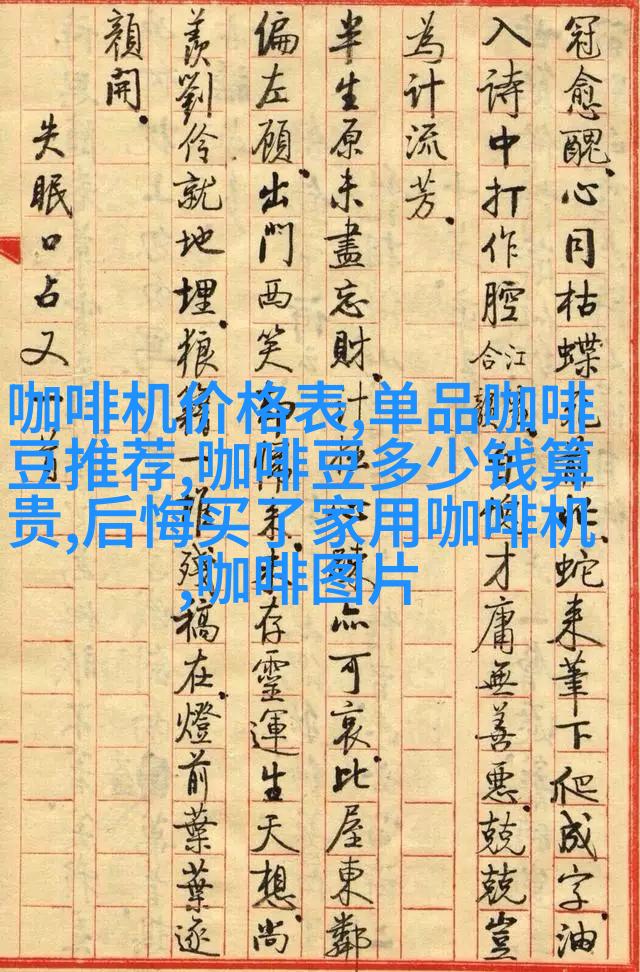 冠愈醜。心同枯蝶 蛇来筆下爬成字。油
入詩中打作腔 合江 才庸無善悪。兢兢豈
為計流芳。
半生原未盡忘財。計 亦可哀。比屋東鄰
偏左顧。出門西笑 未存靈運生天想。尚
羨劉伶就地埋。狼籍一 残稿在。燈前葉葉逐
顔開。
失眠口占又一首
咖啡机价格表,单品咖啡
豆推荐,咖啡豆多少钱算
贵,后悔买了家用咖啡机
,咖啡图片